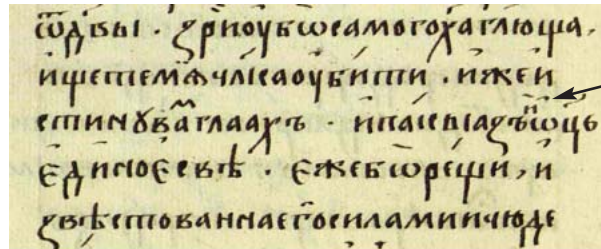 ѿдвы · зриоубѡсамогохаглюща,
ищетемѧчлкаоубити · ижеи
стинꙋваⷨглаахъ · ипакыазъиѡць
единоесвѣ · ежебѡрещи, и
звѣстованнаегосиламиичюде